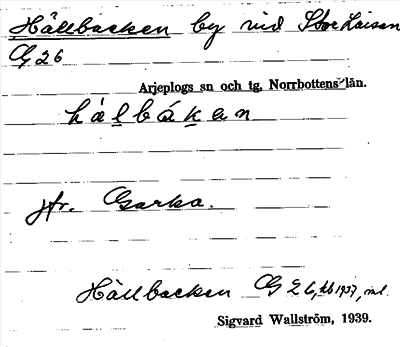 Hällbacken by vid Stor Laisan
G 26
Arjeplogs sn och tg, Norrbottens län.
hälbákan
jfr. Garka.
Hällbacken G 26, tb 1937, ml.
Sigvard Wallström, 1939.